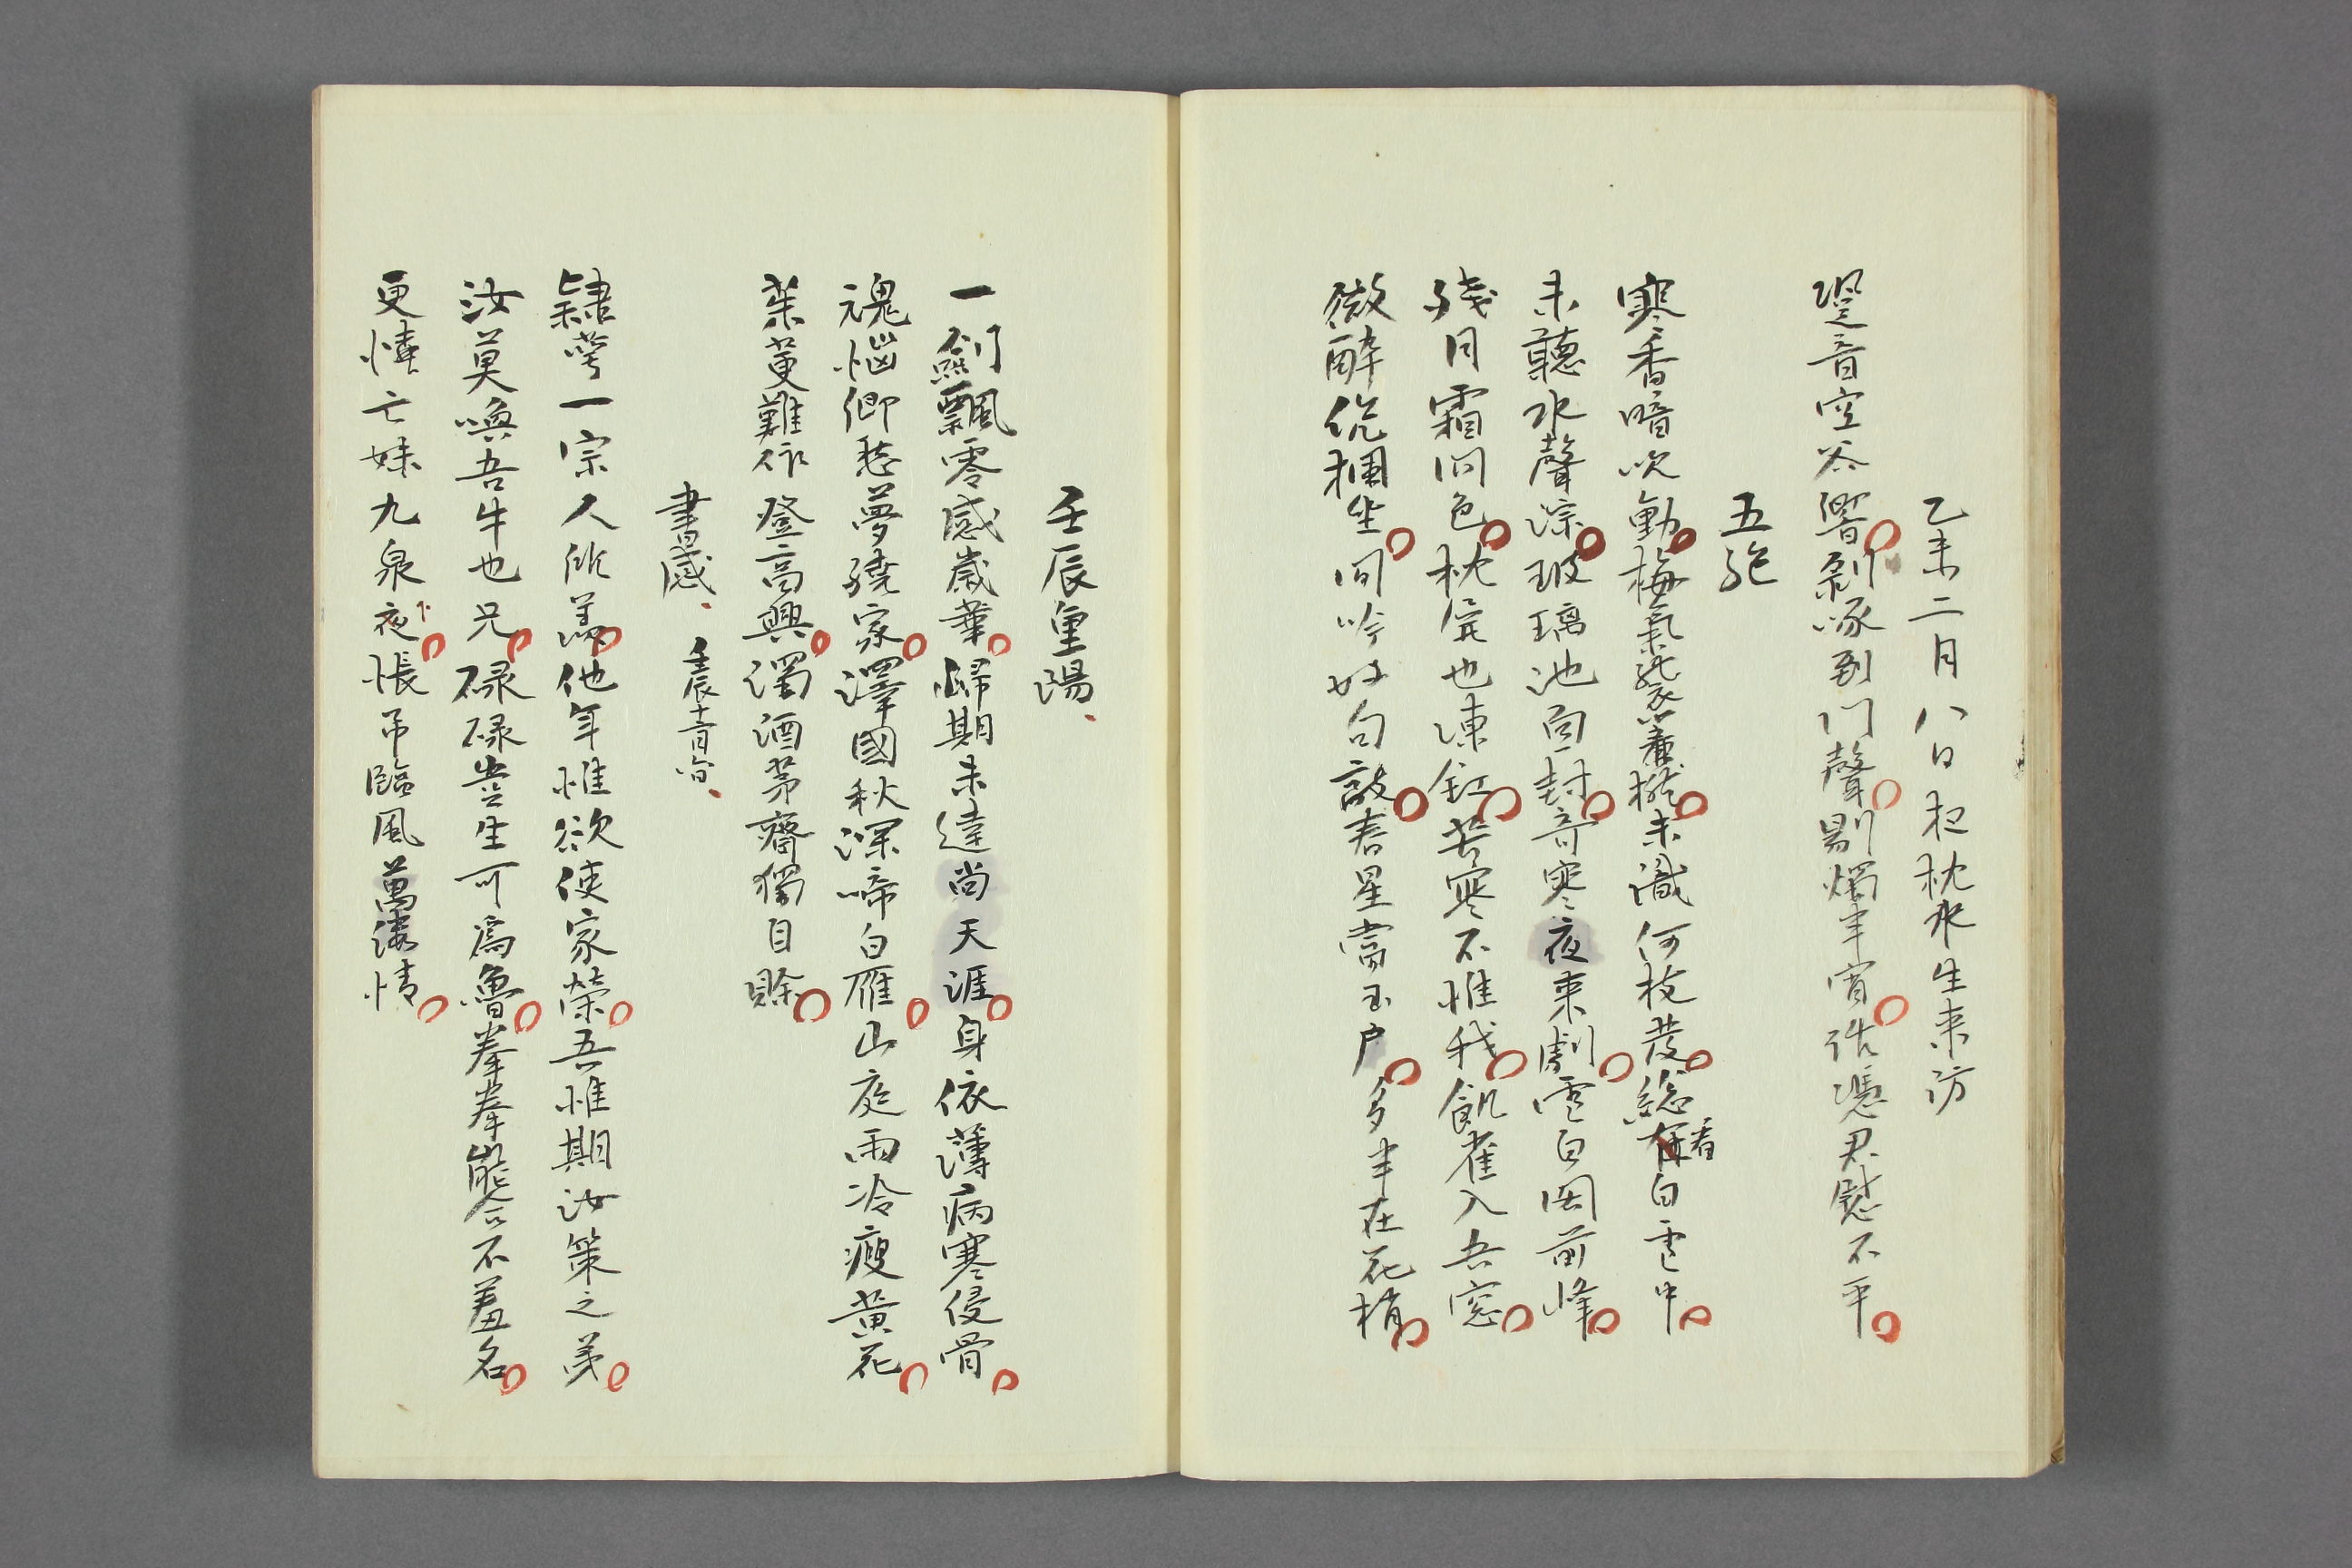 乙未二月八日枕水生来訪
跫音空谷響剝啄到門聲剔燭半宵話憑君慰不平
五絶
寒香暗吹動梅氣襲簾櫳未識何枝發総看白雲中
未聽水聲淙玻璃池面封奇寒夜来劇雪白関前峰
残月霜同色枕屏也凍釭苦寒不惟我飢雀入吾窓
微醉倚欄坐同吟好句敲春星當玉戶多半在花梢
壬辰重陽
一劍飄零感歳華歸期未達尚天涯身依薄病寒侵骨
魂惱卿愁夢繞家澤國秋深啼白雁山庭雨冷瘦黄花
茱萸難作登高興濁酒茅齋獨自賒
書感 壬辰
隷萼一宗人所羨他年惟欲使家榮吾惟期汝策之弟
汝莫喚吾牛也兄碌碌豈生可為魯拳拳斃不羞名
更憐亡妹九泉下夜悵吊臨風萬湊情